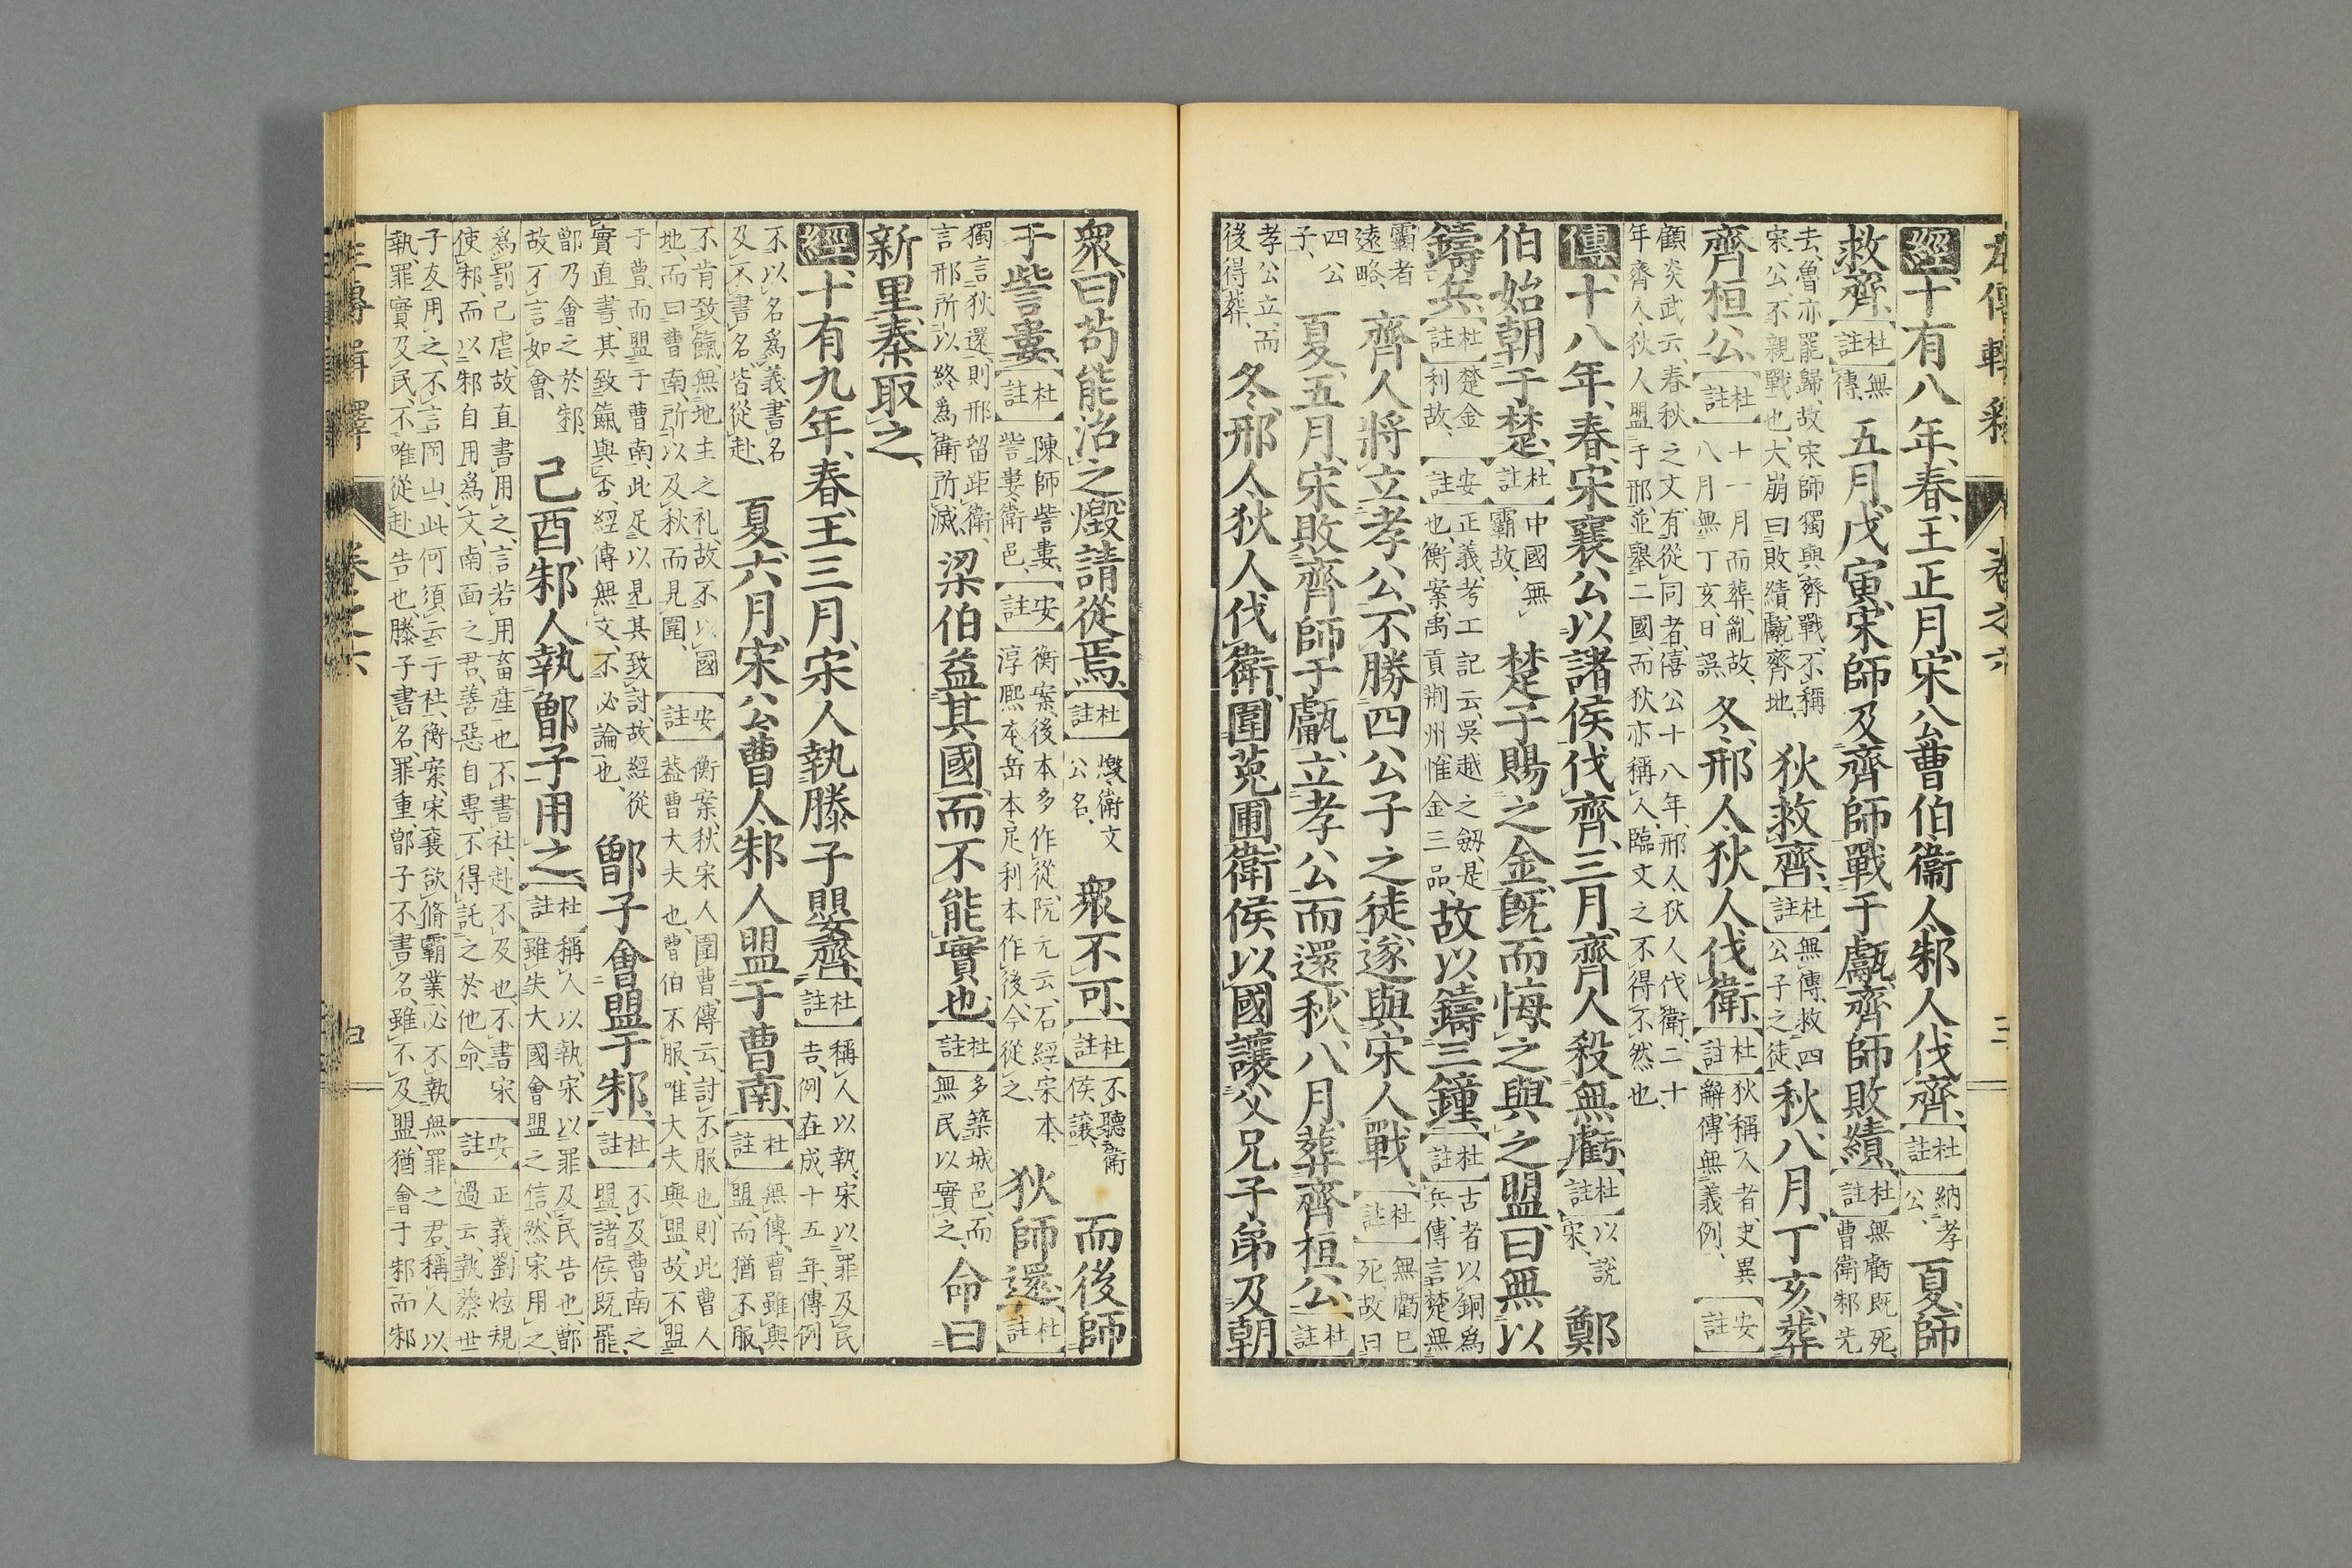 左傳輯釋 卷之六 三
經十有八年、春、王正月、宋公曹伯衞人邾人伐齊、【杜註】納孝公、夏、師
救齊、【杜註】無傳、五月、戊寅、宋師及齊師戰于甗、齊師敗績、【杜註】無虧既死、曹衞邾先
去、魯亦罷歸、故宋師獨與齊戰、不稱宋公、不親戰也、大崩曰敗績、甗齊地、狄救齊、【杜註】無傳、救四公子之徒、秋八月、丁亥、葬
齊桓公、【杜註】十一月而葬、亂故、八月無丁亥、日誤、冬、邢人狄人伐衞、【杜註】狄稱人者、史異辭、傳無義例、【安註】
顧炎武云、春秋之文、有從同者、僖公十八年、邢人狄人伐衞、二十年齊人狄人盟于邢、並舉二國、而狄亦稱人、臨文之不得不然也、
傳十八年、春、宋襄公以諸侯伐齊、三月、齊人殺無虧、【杜註】以說宋、鄭
伯始朝于楚、【杜註】中國無霸故、楚子賜之金、既而悔之、與之盟曰、無以
鑄兵、【杜註】楚金利故、【安註】正義、考工記云、吳越之劔、是也、衡案、禹貢荊州惟金三品、故以鑄三鐘、【杜註】古者以銅爲兵、傳言楚無
霸者遠略、齊人將立孝公、不勝四公子之徒、遂與宋人戰、【杜註】無虧已死、故曰
四公子、夏、五月、宋敗齊師于甗、立孝公而還、秋、八月、葬齊桓公、【杜註】
孝公立、而後得葬、冬、邢人狄人伐衞、圍菟圃、衞侯以國讓父兄子弟及朝
衆曰、苟能治之、燬請從焉、【杜註】燬、衞文公名、衆不可、【杜註】不聽衞侯讓、而後師
于訾婁、【杜註】陳師訾婁、訾婁衞邑、【安註】衡案、後本多作從、阮元云、石經、宋本、淳熙本、岳本足利本作後、今從之、狄師還、【杜註】
獨言狄還、則邢留距衞、言邢所以終爲衞所滅、梁伯益其國、而不能實也、【杜註】多築城邑、而無民以實之、命曰
新里、秦取之、
經十有九年、春、王三月、宋人執滕子嬰齊、【杜註】稱人以執、宋以罪及民告、例在成十五年、傳例
不以名爲義、書名及不書名、皆從赴、夏六月、宋公曹人邾人盟于曹南、【杜註】無傳、曹雖與盟、而猶不服、
不肯致餼、無地主之礼、故不以國地、而曰曹南、所以及秋而見圍、【安註】衡案、秋宋人圍曹、傳云、討不服也、則此曹人蓋曹大夫也、曹伯不服、唯大夫與盟、故不盟
于曹、而盟于曹南、此足以見其致討、故經從實直書、其致餼與否、經傳無文、不必論也、鄫子會盟于邾、【杜註】不及曹南之盟、諸侯既罷、
鄫乃會之於邾、故不言如會、己酉、邾人執鄫子用之、【杜註】稱人以執、宋以罪及民告也、鄫雖失大國會盟之信、然宋用之、
爲罰已虐、故直書用之、言若用畜産也、不書社、赴不及也、不書宋使邾、而以邾自用爲文、南面之君、善惡自專、不得託之於他命、【安註】正義劉炫規過云、執蔡世
子友用之、不言岡山、此何須云于社、衡案、宋襄欲脩霸業、必不執無罪之君、稱人以執、罪實及民、不唯從赴告也、滕子書名、罪重、鄫子不書名、雖不及盟、猶會于邾、而邾
左傳輯釋 卷之六 四